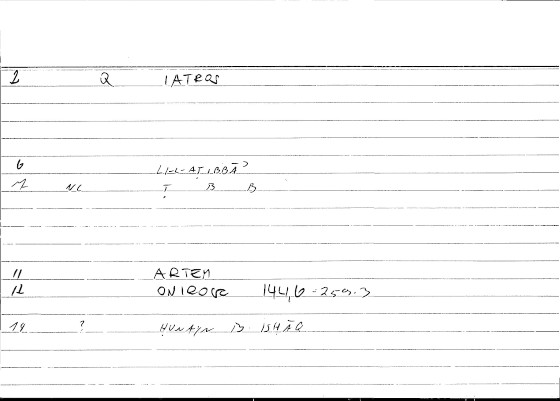 2 Q IATROS
6 LI-L-AṬIBBĀʾ
7 NC Ṭ B B
11 ARTEM
12 ONIROCR 144,6-259.3
19 ? ḤUNAYN B ISḤĀQ